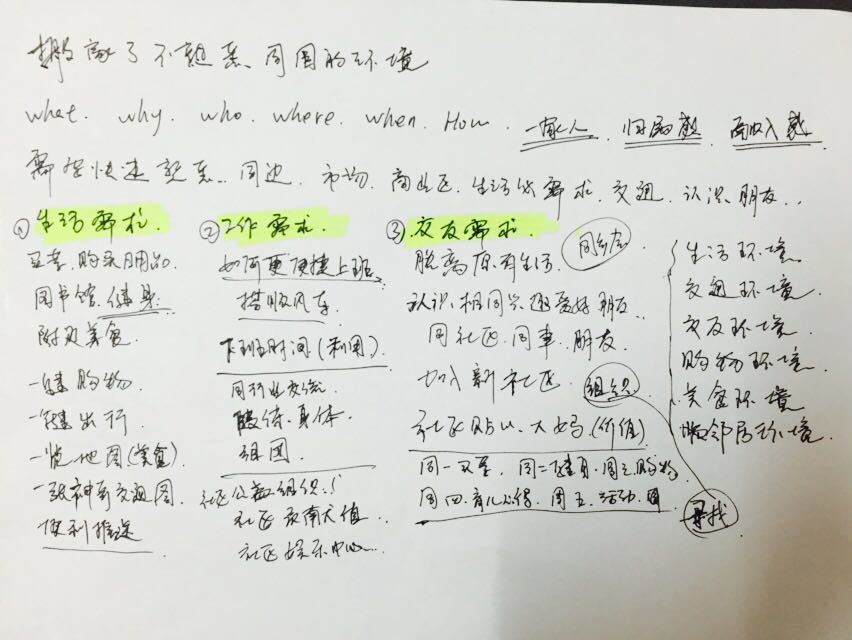 搬家了不熟悉、周围的环境
what. why. who. where. when. How. 一家人. 归属感. 高收入感.
需要快速熟悉.. 周边. 市场. 商业区. 生活需求. 交通. 认识朋友..
① 生活需求.
买菜. 购买日用品.
图书馆. 健身.
附近美食.
一键购物.
一键出行.
一览地图(美食)
一张神奇交通图.
便利推送
② 工作需求.
如何更便捷上班
搭顺风车.
下班时间(利用).
同行业交流.
身体.
组团.
社区公益组织.
社区
社区娱乐中心..
③ 交友需求.
同乡会.
脱离原有生活.
认识相同兴趣爱好朋友
同社区. 同事. 朋友.
加入新社区
组织
社区 大妈.(价值)
周一买菜. 周二健身. 周三购物
周四. 育儿心得. 周五. 活动.
寻找
生活环境.
交通环境.
交友环境.
购物环境.
美食环境
邻居环境.